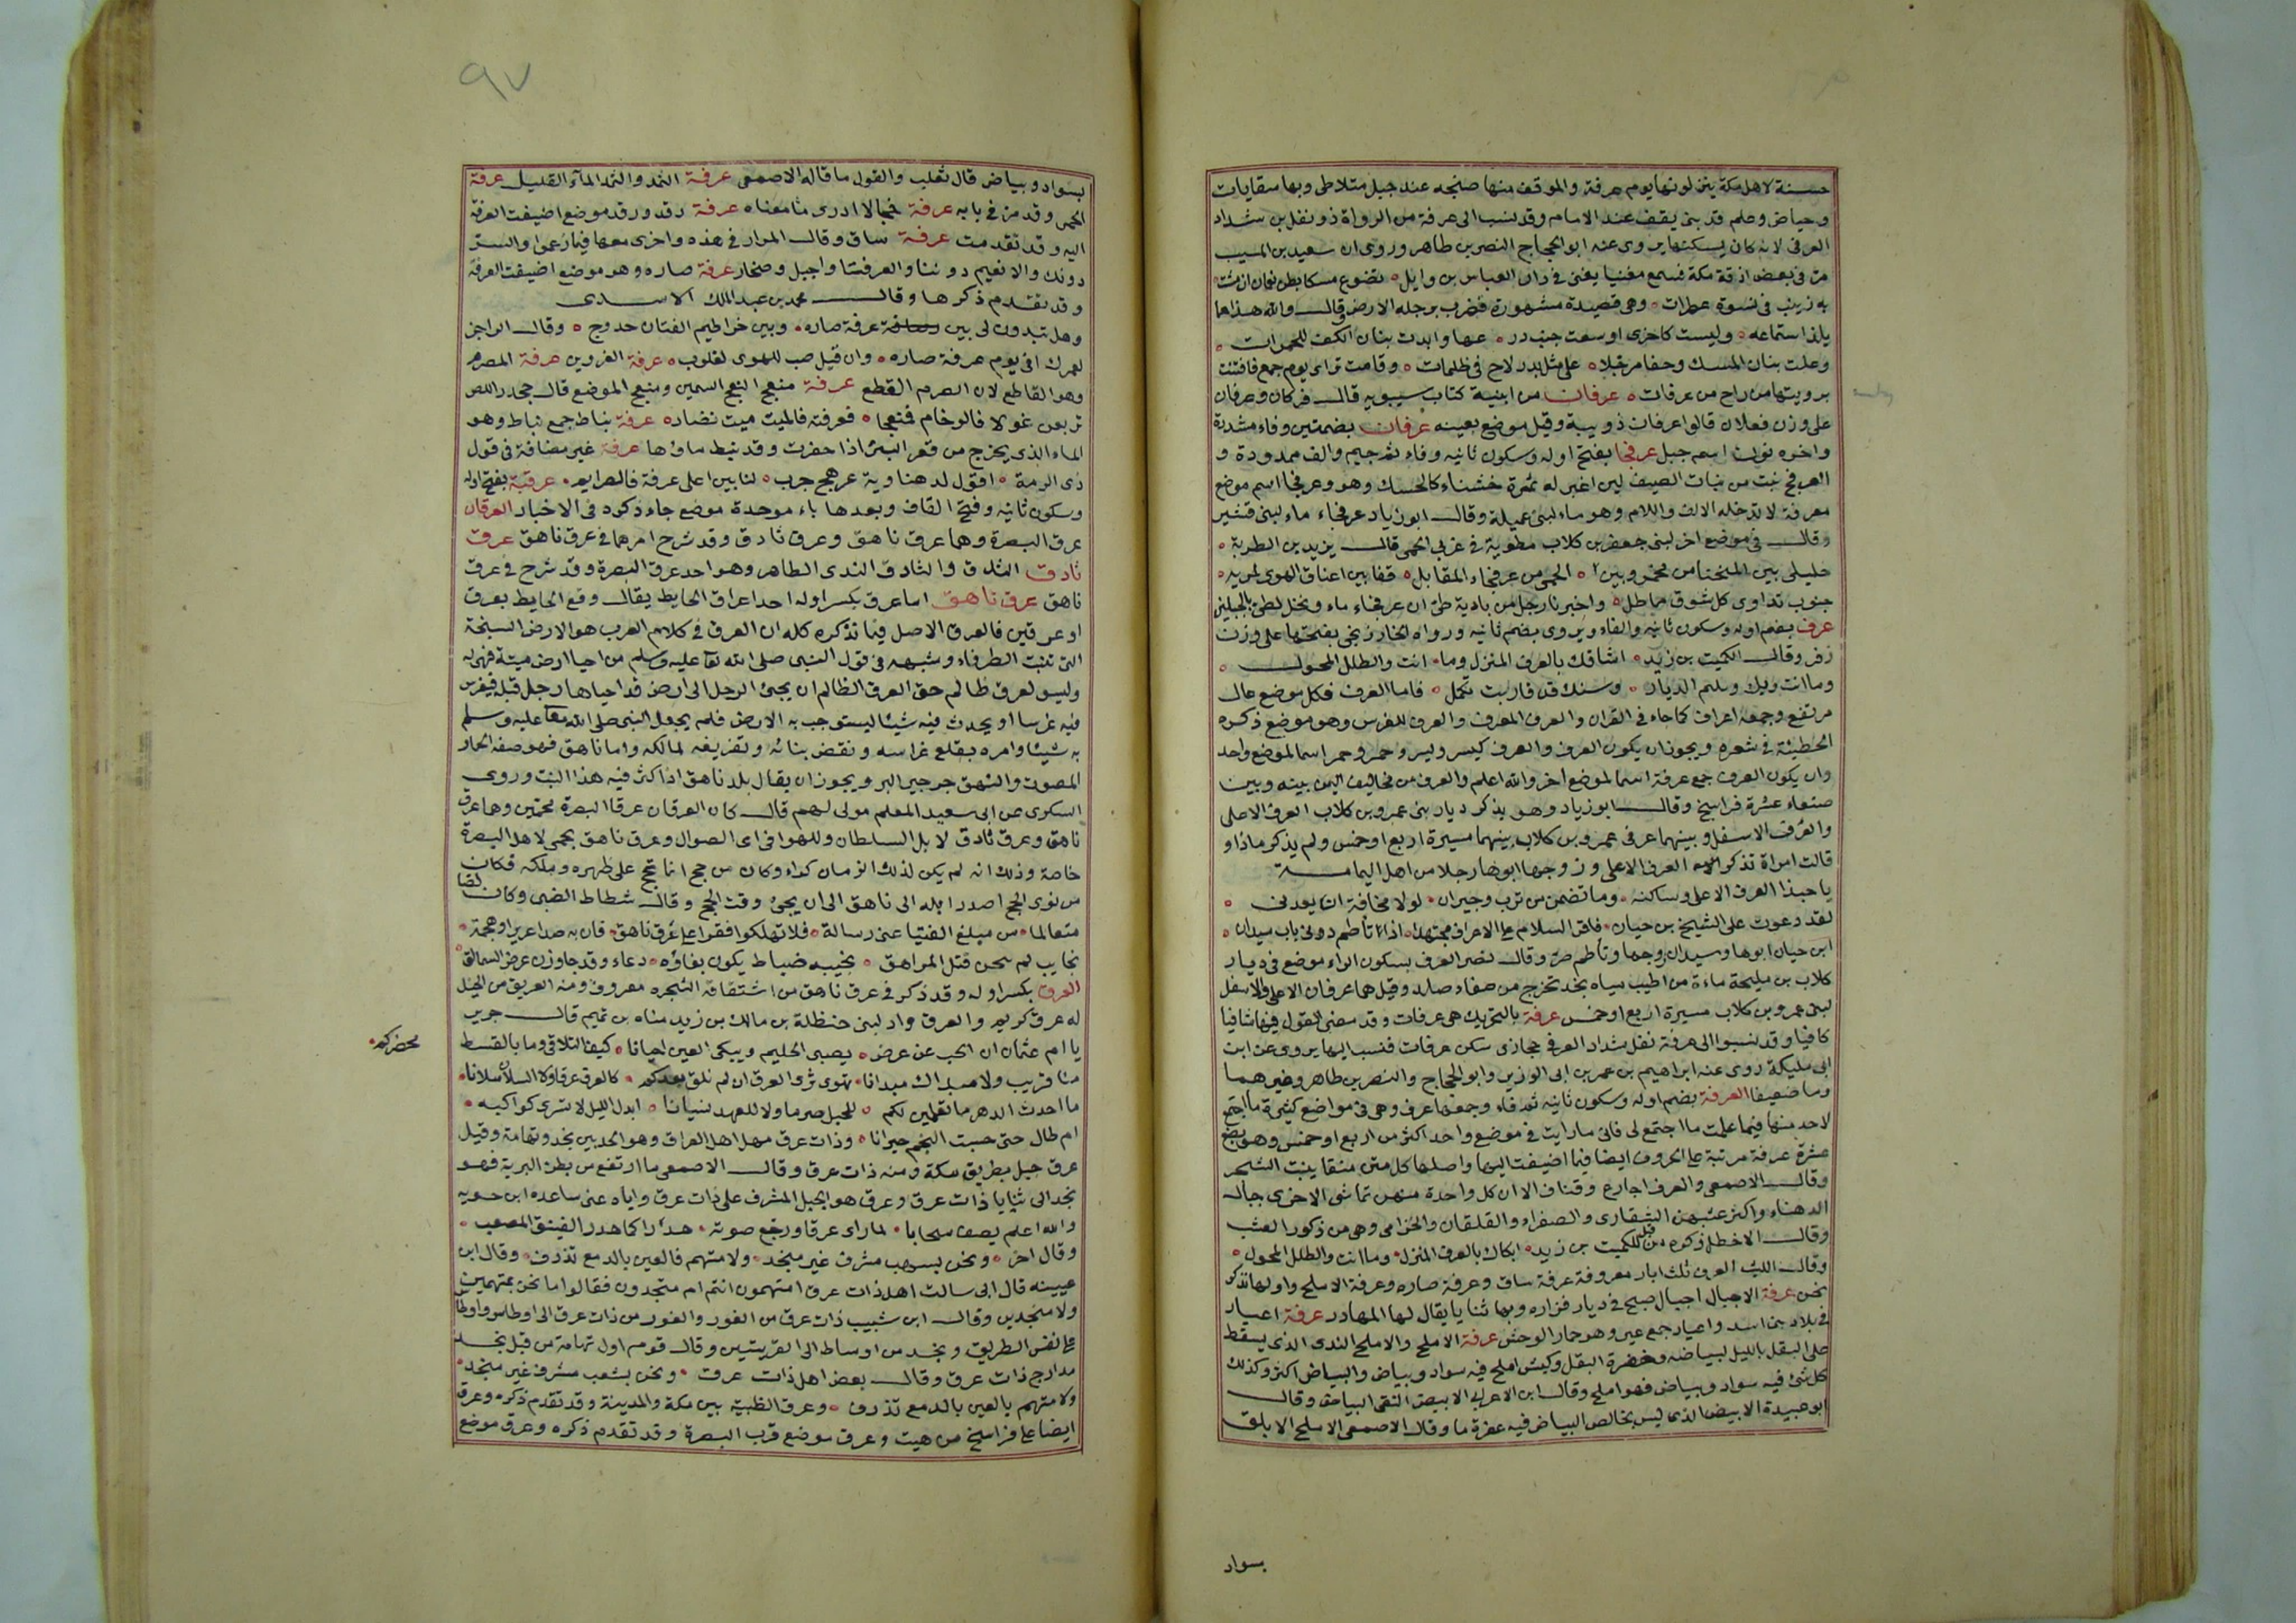 حسنة لاهل مكة ينزلونها يوم عرفة والموقف منها صنجه عند جبل متلاطى وبها سقايات
وحياض وعلم قد بنى يقف عند الامام وقد نسب الى عرفة من الرواة ذو نفل بن شداد
العرفى لانه كان يسكنها يروى عنه ابو الحجاج النضر بن طاهر وروى ان سعيد بن المسيب
مر فى بعض ازقة مكة فسمع مغنيا يغنى فى دار العباس بن وايل تضوع مسكا بطن نعمان ان مشت
به زينب فى نسوة عطرات وهى قصيدة مشهورة فضرب برجله الارض وقال والله هذا ما
يلذ استماعه وليست كاخرى اوسعت جيب در عها وابدت بنان الكف للجمرات
وعلت بنان المسك وحفا مرجلا على مثل بدر لاح فى ظلمات وقامت تراى يوم جمع فافتنت
برويتها من راح من عرفات عرفان من ابنية كتاب سيبويه قال فركان وعرفان
على وزن فعلان قالوا عرفان ذويبة وقيل موضع بعينه عرفان بضمتين وفاء مشددة
واخره نون اسم جبل عرفجا بفتح اوله وسكون ثانيه وفاء ثم جيم والف ممدودة و
العرفج نبت من نبات الصيف لين اغبر له ثمرة خشناء كالحسك وهو وعرفجا اسم موضع
معرفة لا تدخله الالف واللام وهو ماء لبنى عميلة وقال ابو زياد عرفجاء ماء لبنى قشير
وقال فى موضع اخر لبنى جعفر بن كلاب مطوية فى غربى الحمى قال يزيد بن الطثرية
خليلى بين المنحنا من مخمر وبين الحمى من عرفجاء المقابل قفا بين اعناق الهوى لمربه
جنوب تداوى كل شوق مماطل واخبرنا رجل من بادية طئ ان عرفجاء ماء ونخل لطئ بالجبلين
عرف بضم اوله وسكون ثانيه والفاء ويروى بضم ثانيه ورواه الخارزنجى بفتحها على وزن
زفر وقال الكميت بن زيد اشاقك بالعرف المنزل وما انت والطلل المحول
وما انت ويك ورسم الديار وسنك قد قاربت تكمل فاما العرف فكل موضع عال
مرتفع وجمعه اعراف كما جاء فى القران والعرف المعرف والعرف للفرس وهو موضع ذكره
الحطيئة فى شعره ويجوز ان يكون العرف والعرف كيسر ويسر وحمر وحمر اسما لموضع واحد
وان يكون العرف جمع عرفة اسما لموضع اخر والله اعلم والعرف من مخاليف اليمن بينه وبين
صنعاء عشرة فراسخ وقال ابو زياد وهو يذكر ديار بنى عمرو بن كلاب العرف الاعلى
والعرف الاسفل وبينهما عرفى عمرو بن كلاب بينهما مسيرة اربع او خمس ولم يذكر ماذا و
قالت امراة تذكر العرف الاعلى وزوجها ابوها رجلا من اهل اليمامة
يا حبذا العرف الاعلى وساكنه وما تضمن من قرب وجيران لولا مخافة
لقد دعوت على الشيخ بن حيان فاقر السلام على الاعراف مجتهدا اذا تاطم دونى باب سيدان
ابن حيان ابوها وسيدان زوجها وتاطم صر وقال نصر العرف بسكون الراء موضع فى ديار
كلاب بن مليحة ماءة من اطيب مياه نجد تخرج من صفاء صلد وقيل هما عرفان الاعلى والاسفل
لبنى عمرو بن كلاب مسيرة اربع او خمس عرفة بالتحريك هى عرفات وقد مضى القول فيها شافيا
كافيا وقد نسبوا الى عرفة نفل بشداد العرفى حجازى سكن عرفات فنسب اليها يروى عن ابن
ابى مليكة روى عنه ابراهيم بن عمر بن ابى الوزير وابو الحجاج والنضر بن طاهر وغيرهما
وما ضعيفا العرفة بضم اوله وسكون ثانيه ثم فاء وجمعها عرف وهى فى مواضع كثيرة ما اجتمع
لاحد منها فيما علمت ما اجتمع لى فانى ما رايت فى موضع واحد اكثر من اربع او خمس وهو بضع
عشرة عرفة مرتبة على الحروف ايضا فيما اضيفت اليها واصلها كل متن منقاد ينبت الشجر
وقال الاصمعى والعرف اجارع وقفاف الا ان كل واحدة منهن تماشى الاخرى جبال
الدهناء واكثر عشبهن الشقارى والصفراء والقلقلان والخزامى وهى من ذكور العشب
وقال الاخطل ذكره من قبل الكميت بن زيد ابكاك بالعرف المنزل وما انت والطلل المحول
وقال الليث العرف ثلث ابار معروفة عرفة ساق وعرفة صاره وعرفة الاملح واولها نذكر
نحن عرفة الاجبال اجبال صبح فى ديار فزاره وبها ثنايا يقال لها المهادر عرفة اعيار
فى بلاد بنى اسد واعيار جمع عير وهو حمار الوحش عرفة الاملح والاملح الندى الذى يسقط
على البقل بالليل لبياضه وخضرة البقل وكبش املح فيه سواد وبياض والبياض اكثر وكذلك
كل شئ فيه سواد وبياض فهو املح وقال ابن الاعرابى الابيض النقى البياض وقال
ابو عبيدة الابيض الذى ليس بخالص البياض فيه عفرة ما وقال الاصمعى الاملح الابلق
بسواد
٩٧
بسواد وبياض قال ثعلب والقول ما قاله الاصمعى عرفة الثمد والثمد الماء القليل عرفة
الحمى وقد مر فى بابه عرفة خجا لا ادرى ما معناه عرفة رقد ورقد موضع اضيفت العرفة
اليه وقد تقدمت عرفة ساق وقال المرار فى هذه واخرى معها فيما زعموا والستر
دونك والانعيم دوننا والعرفتا واجبل وصخار عرفة صاره وهو موضع اضيفت العرفة
وقد تقدم ذكرها وقال محمد بن عبد الملك الاسدى
وهل تبدون لى بين عرفة صاره وبين خراطيم القنان حدوج وقال الراجز
لعمرك انى يوم عرفة صاره وان قيل صب للهوى لغلوب عرفة الفروين عرفة المصرم
وهو القاطع لان الصرم القطع عرفة منعج النعج السمين ومنعج الموضع قال جحدر اللص
تربعن غولا فالرخام فمنعجا فعرفته فالميث ميث نضاده عرفة نباط جمع نباط وهو
الماء الذى يخرج من قعر البئر اذا حفرت وقد نبط ماؤها عرفة غير مضافة فى قول
ذى الرمة اقول لدهناوية عوهج جرت لنا بين اعلى عرفة فالصرايم عرقبة بفتح اوله
وسكون ثانيه وفتح القاف وبعدها باء موحدة موضع جاء ذكره فى الاخبار العرقان
عرق البصرة وهما عرق ناهق وعرق ثادق وقد شرح امرهما فى عرق ناهق عرق
ثادق الثدق والثادق الندى الظاهر وهو احد عرقى البصرة وقد شرح فى عرق
ناهق عرق ناهق اما عرق بكسر اوله احد اعراق الحايط يقال وقع الحايط بعرق
او عرقين فالعرق الاصل فيما نذكره كله ان العرق فى كلام العرب هو الارض السبخة
التى تنبت الطرفاء وشبهه فى قول النبى صلى الله تعا عليه وسلم من احيا ارض ميتة فهى له
وليس لعرق ظالم حق العرق الظالم ان يجئ الرجل الى ارض قد احياها رجل قبله فيغرس
فيه غرسا او يحدث فيه شيئا ليستوجب به الارض فلم يجعل النبى صلى الله تعا عليه وسلم
به شيئا وامره بقلع غراسه ونقض بنائه وتفريغه لمالكه واما ناهق فهو صفة الحمار
المصوت والنهق جرجير البر ويجوز ان يقال بلد ناهق اذا كثر فيه هذا النبت وروى
السكرى عن ابى سعيد المعلم مولى لهم قال كان العرقان عرقا البصرة محميين وهما عرق
ناهق وعرق ثادق لابل السلطان وللهوافى اى الضوال وعرق ناهق يحمى لاهل البصرة
خاصة وذلك انه لم يكن لذلك الزمان كراء وكان من حج انما يحج على ظهره وملكه فكان
من نوى الحج اصدر ابله الى ناهق الى ان يجئ وقت الحج وقال شظاظ الضبى وكان لصا
متعالما من مبلغ الفتيا عنى رسالة فلا تهلكوا فقرا على عرق ناهق فان به صيدا عزيزا وهجمة
نجايب لم ينتجن قتل المراهق نجيبه ضباط يكون بغاؤه دعاء وقد جاوزن عرض السمالق
العرق بكسر اوله وقد ذكر فى عرق ناهق من اشتقاقه الشجره معروف ومنه العريق من الخيل
له عرق كريم والعرق واد لبنى حنظلة بن مالك بن زيد مناه بن تميم قال جرير
يا ام عثمان ان الحب عن عرض يصبى الحليم ويبكى العين احيانا كيف التلاقى وما بالقيظ
محضركم
منا قريب ولا مبداك مبدانا تهوى ثرى العرق ان لم نلق بعدكم كالعرق عرقا ولا السلان سلانا
ما احدث الدهر مما تعلمين لكم للحبل صرما ولا للعهد نسيانا ابدل الليل لا تسرى كواكبه
ام طال حتى حسبت النجم حيرانا وذات عرق مهل اهل العراق وهو الحد بين نجد وتهامة وقيل
عرق جبل بطريق مكة ومنه ذات عرق وقال الاصمعى ما ارتفع من بطن البرية فهو
نجد الى ثنايا ذات عرق وعرق هو الجبل المشرف على ذات عرق واياه عنى ساعده ابن جويه
والله اعلم يصف سحابا لما راى عرقا ورجع صوته هدرا كما هدر الفنيق المصعب
وقال اخر ونحن بسهب مشرف غير منجد ولا متهم فالعين بالدمع تذرف وقال ابن
عيينه قال ابى سالت اهل ذات عرق امتهمون انتم ام منجدون فقالوا ما نحن بمتهمين
ولا منجدين وقال ابن شبيب ذات عرق من الغور والغور من ذات عرق الى اوطاس واوطاس
على نفس الطريق ونجد من اوطاس الى القريتين وقال قوم اول تهامة من قبل نجد
مدارج ذات عرق وقال بعض اهل ذات عرق ونحن بشعب مشرف غير منجد
ولا متهم بالعين بالدمع تذرف وعرق الظبية بين مكة والمدينة وقد تقدم ذكره وعرق
ايضا على فراسخ من هيت وعرق موضع قرب البصرة وقد تقدم ذكره وعرق موضع